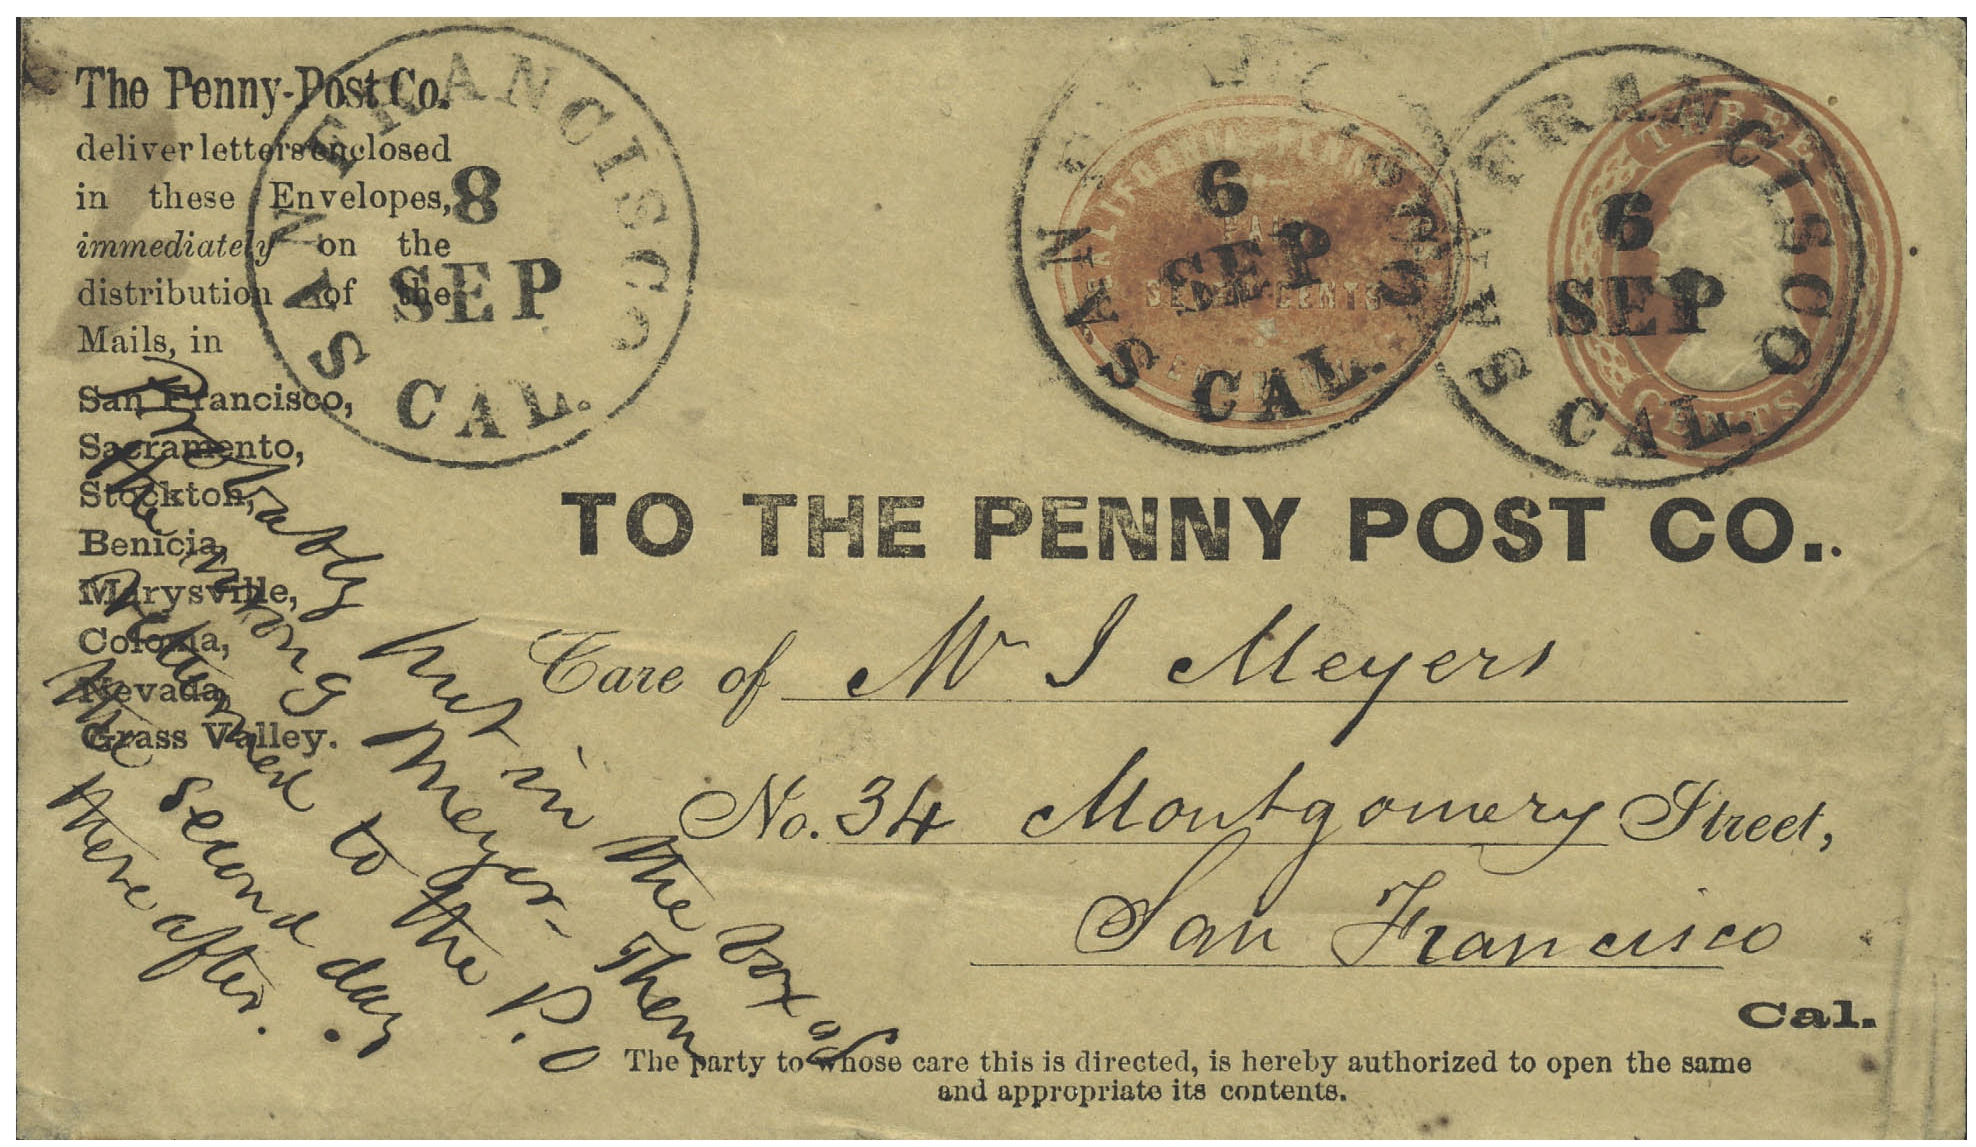 The Penny-Post Co.
deliver letters enclosed
in these Envelopes,
immediately on the
distribution of the
Mails, in
San Francisco,
Sacramento,
Stockton,
Benicia,
Marysville,
Coloma,
Nevada,
Grass Valley.
SAN FRANCISCO
8
SEP
CAL.
SAN FRANCISCO
6
SEP
CAL.
CALIFORNIA PENNY
PAID
SEVEN CENTS
SAN FRANCISCO
6
SEP
CAL.
THREE
CENTS
TO THE PENNY POST CO.
Care of Mr J Meyers
No. 34 Montgomery Street,
San Francisco
Cal.
The party to whose care this is directed, is hereby authorized to open the same
and appropriate its contents.
Probably put in the box of
the wrong Meyer - Then
returned to the P.O
the second day
there after.